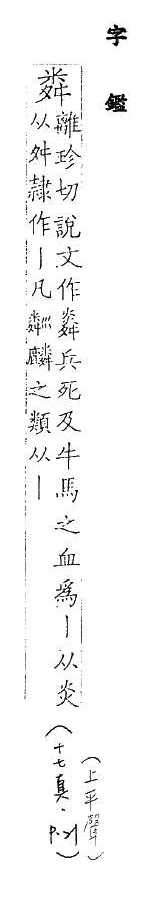 字鑑
粦
離珍切說文作㷠兵死及牛馬之血爲丨从炎
从舛隸作丨凡粼麟之類从丨
(上平聲)
(十七真.P.21)